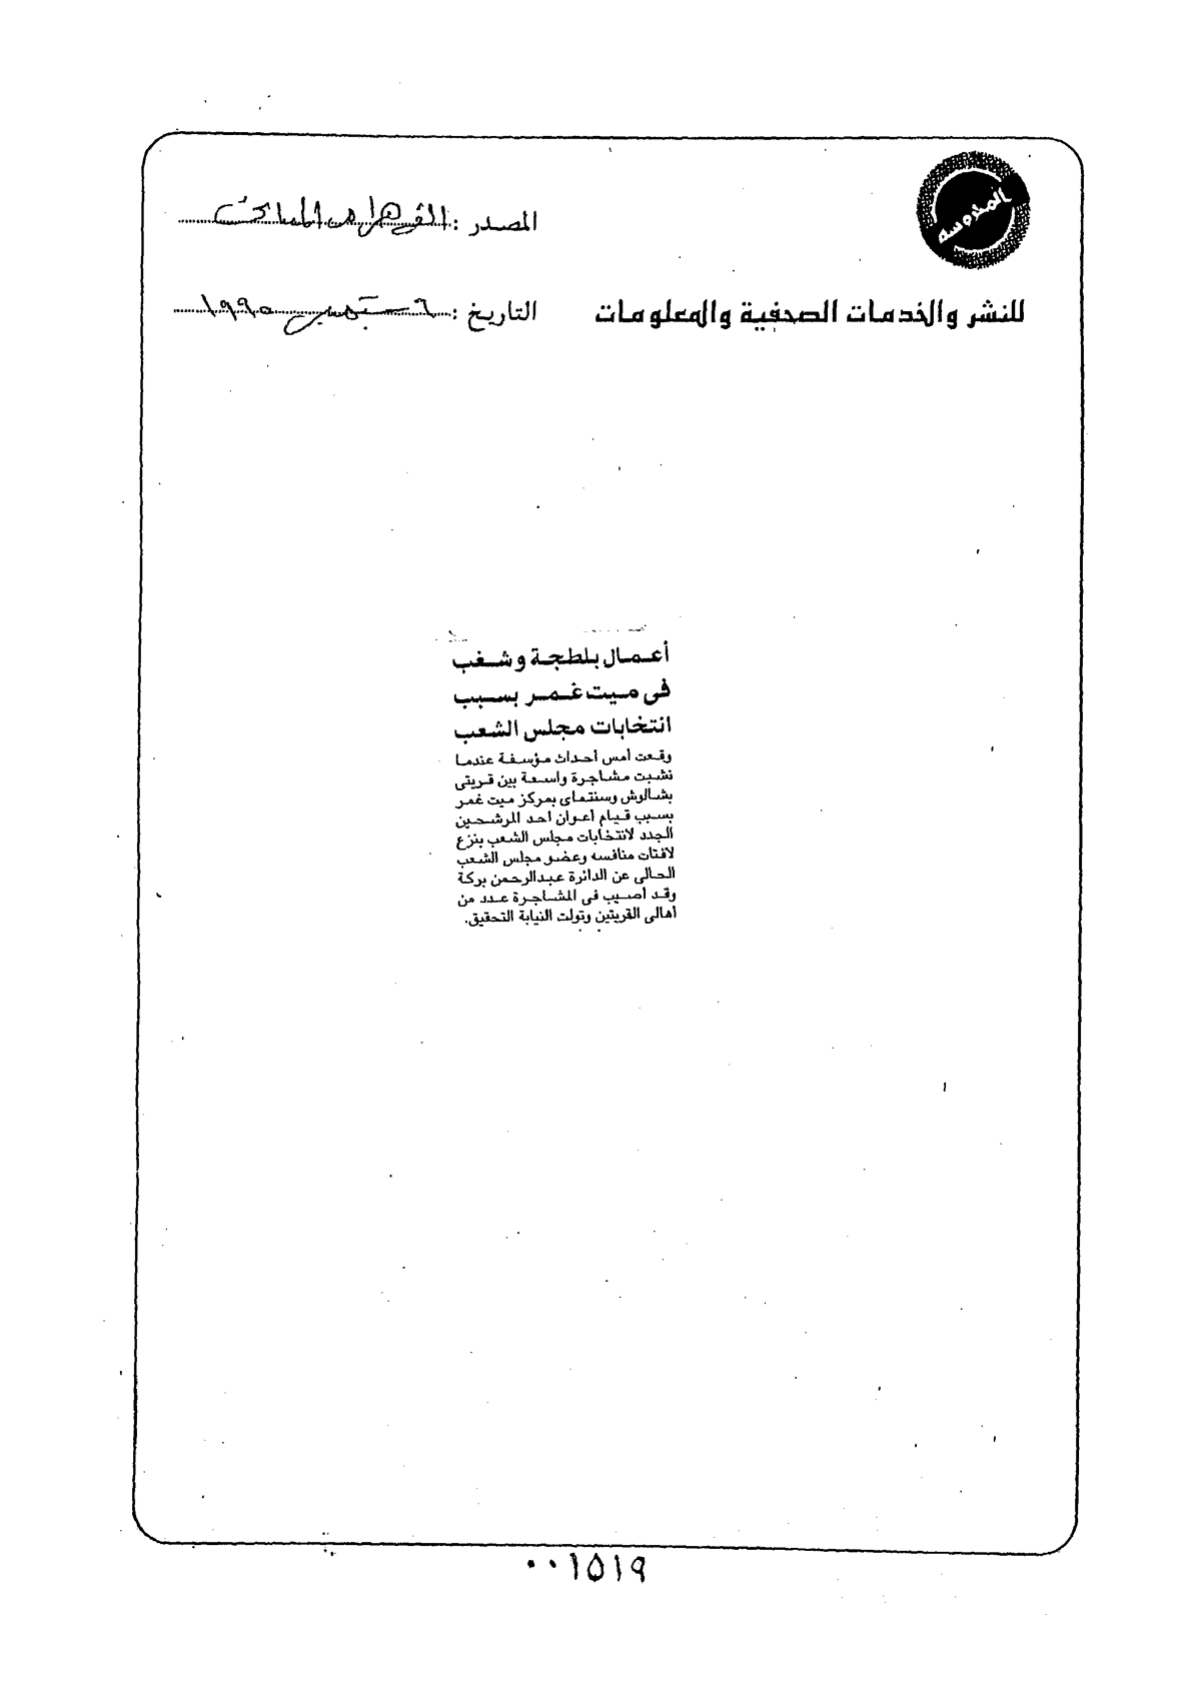 المحروسة
المصدر : الأهرام المسائى
للنشر والخدمات الصحفية والمعلومات
التاريخ : ٦ سبتمبر ١٩٩٥
أعمال بلطجة وشغب
فى ميت غمر بسبب
انتخابات مجلس الشعب
وقعت أمس أحداث مؤسفة عندما
نشبت مشاجرة واسعة بين قريتى
بشالوش وسنتماى بمركز ميت غمر
بسبب قيام أعوان احد المرشحين
الجدد لانتخابات مجلس الشعب بنزع
لافتات منافسه وعضو مجلس الشعب
الحالى عن الدائرة عبدالرحمن بركة
وقد أصيب فى المشاجرة عدد من
أهالى القريتين وتولت النيابة التحقيق.
٠٠١٥١٩